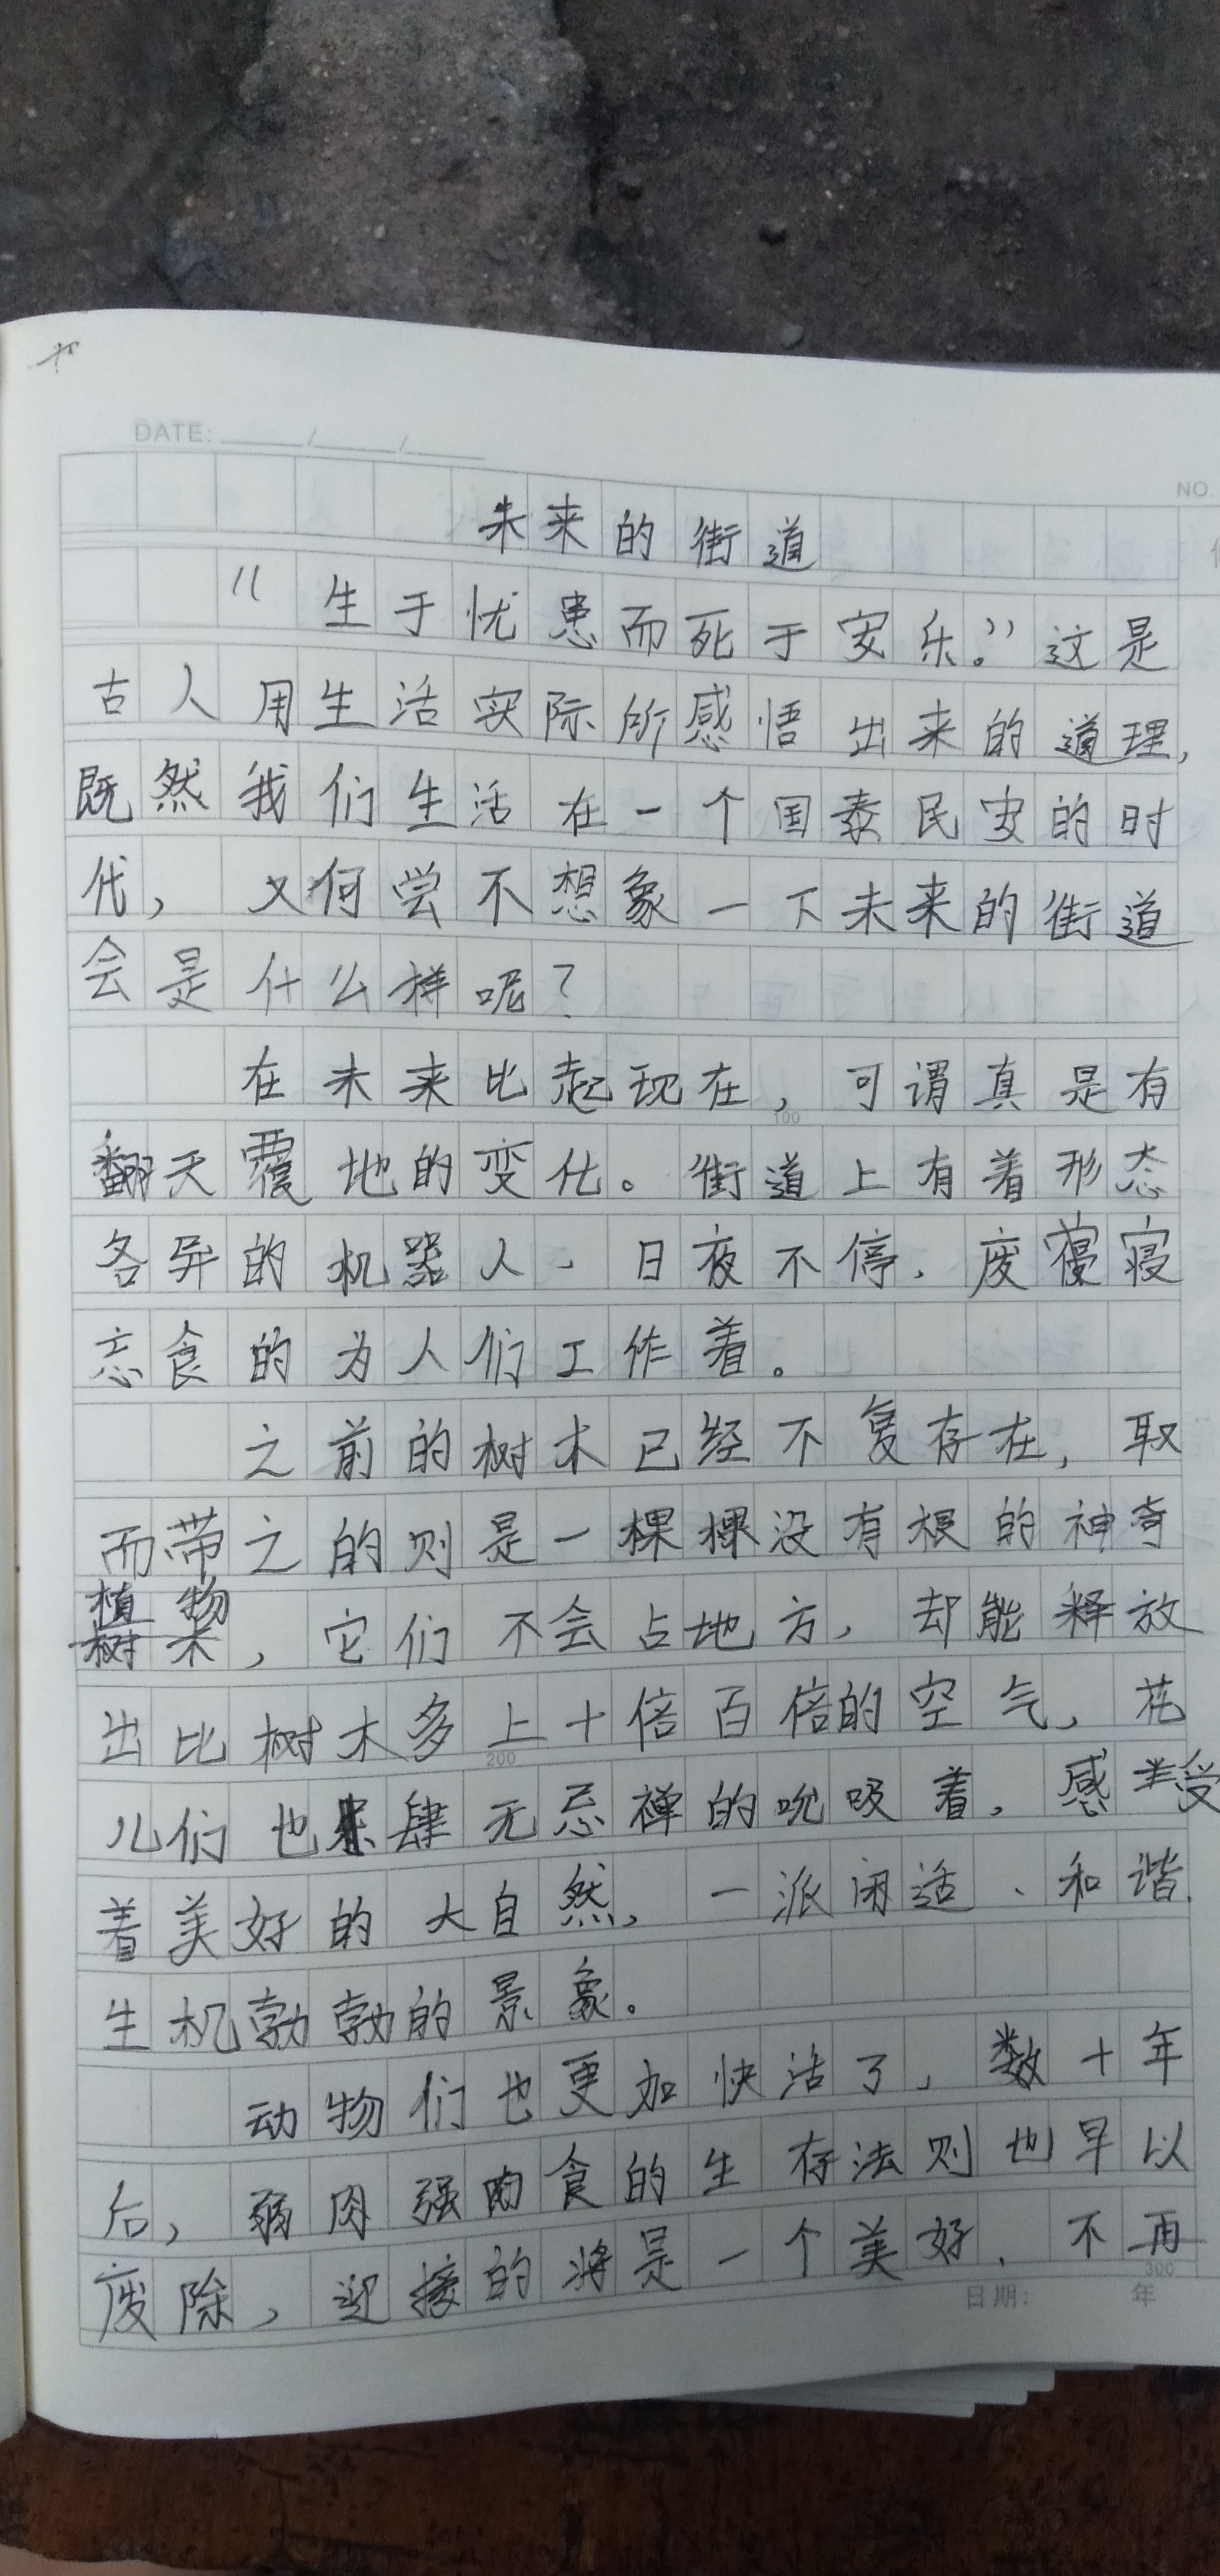 DATE: ____/____/____
NO.
未来的街道
“生于忧患而死于安乐。”这是
古人用生活实际所感悟出来的道理，
既然我们生活在一个国泰民安的时
代，又何尝不想象一下未来的街道
会是什么样呢？
在未来比起现在，可谓真是有
100
翻天覆地的变化。街道上有着形态
各异的机器人、日夜不停、废寝
忘食的为人们工作着。
之前的树木已经不复存在，取
而带之的则是一棵棵没有根的神奇
植物，它们不会占地方，却能释放
出比树木多上十倍百倍的空气，花
200
儿们也肆无忌禅的吮吸着，感受
着美好的大自然，一派闲适、和谐、
生机勃勃的景象。
动物们也更加快活了，数十年
后，弱肉强食的生存法则也早以
废除，迎接的将是一个美好、不再
300
日期： 年